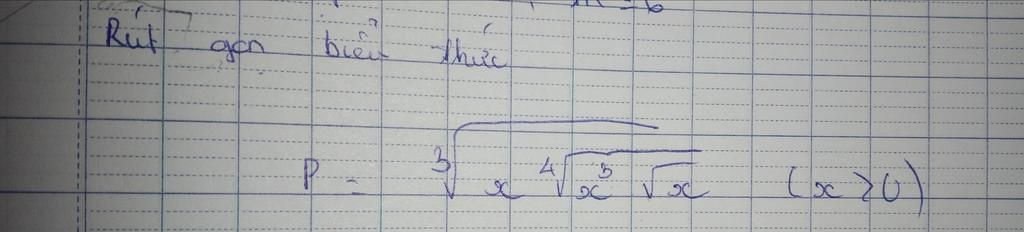 Rút gọn biểu thức
P = ∛(x ∜(x⁵ √x)) (x ≥ 0)